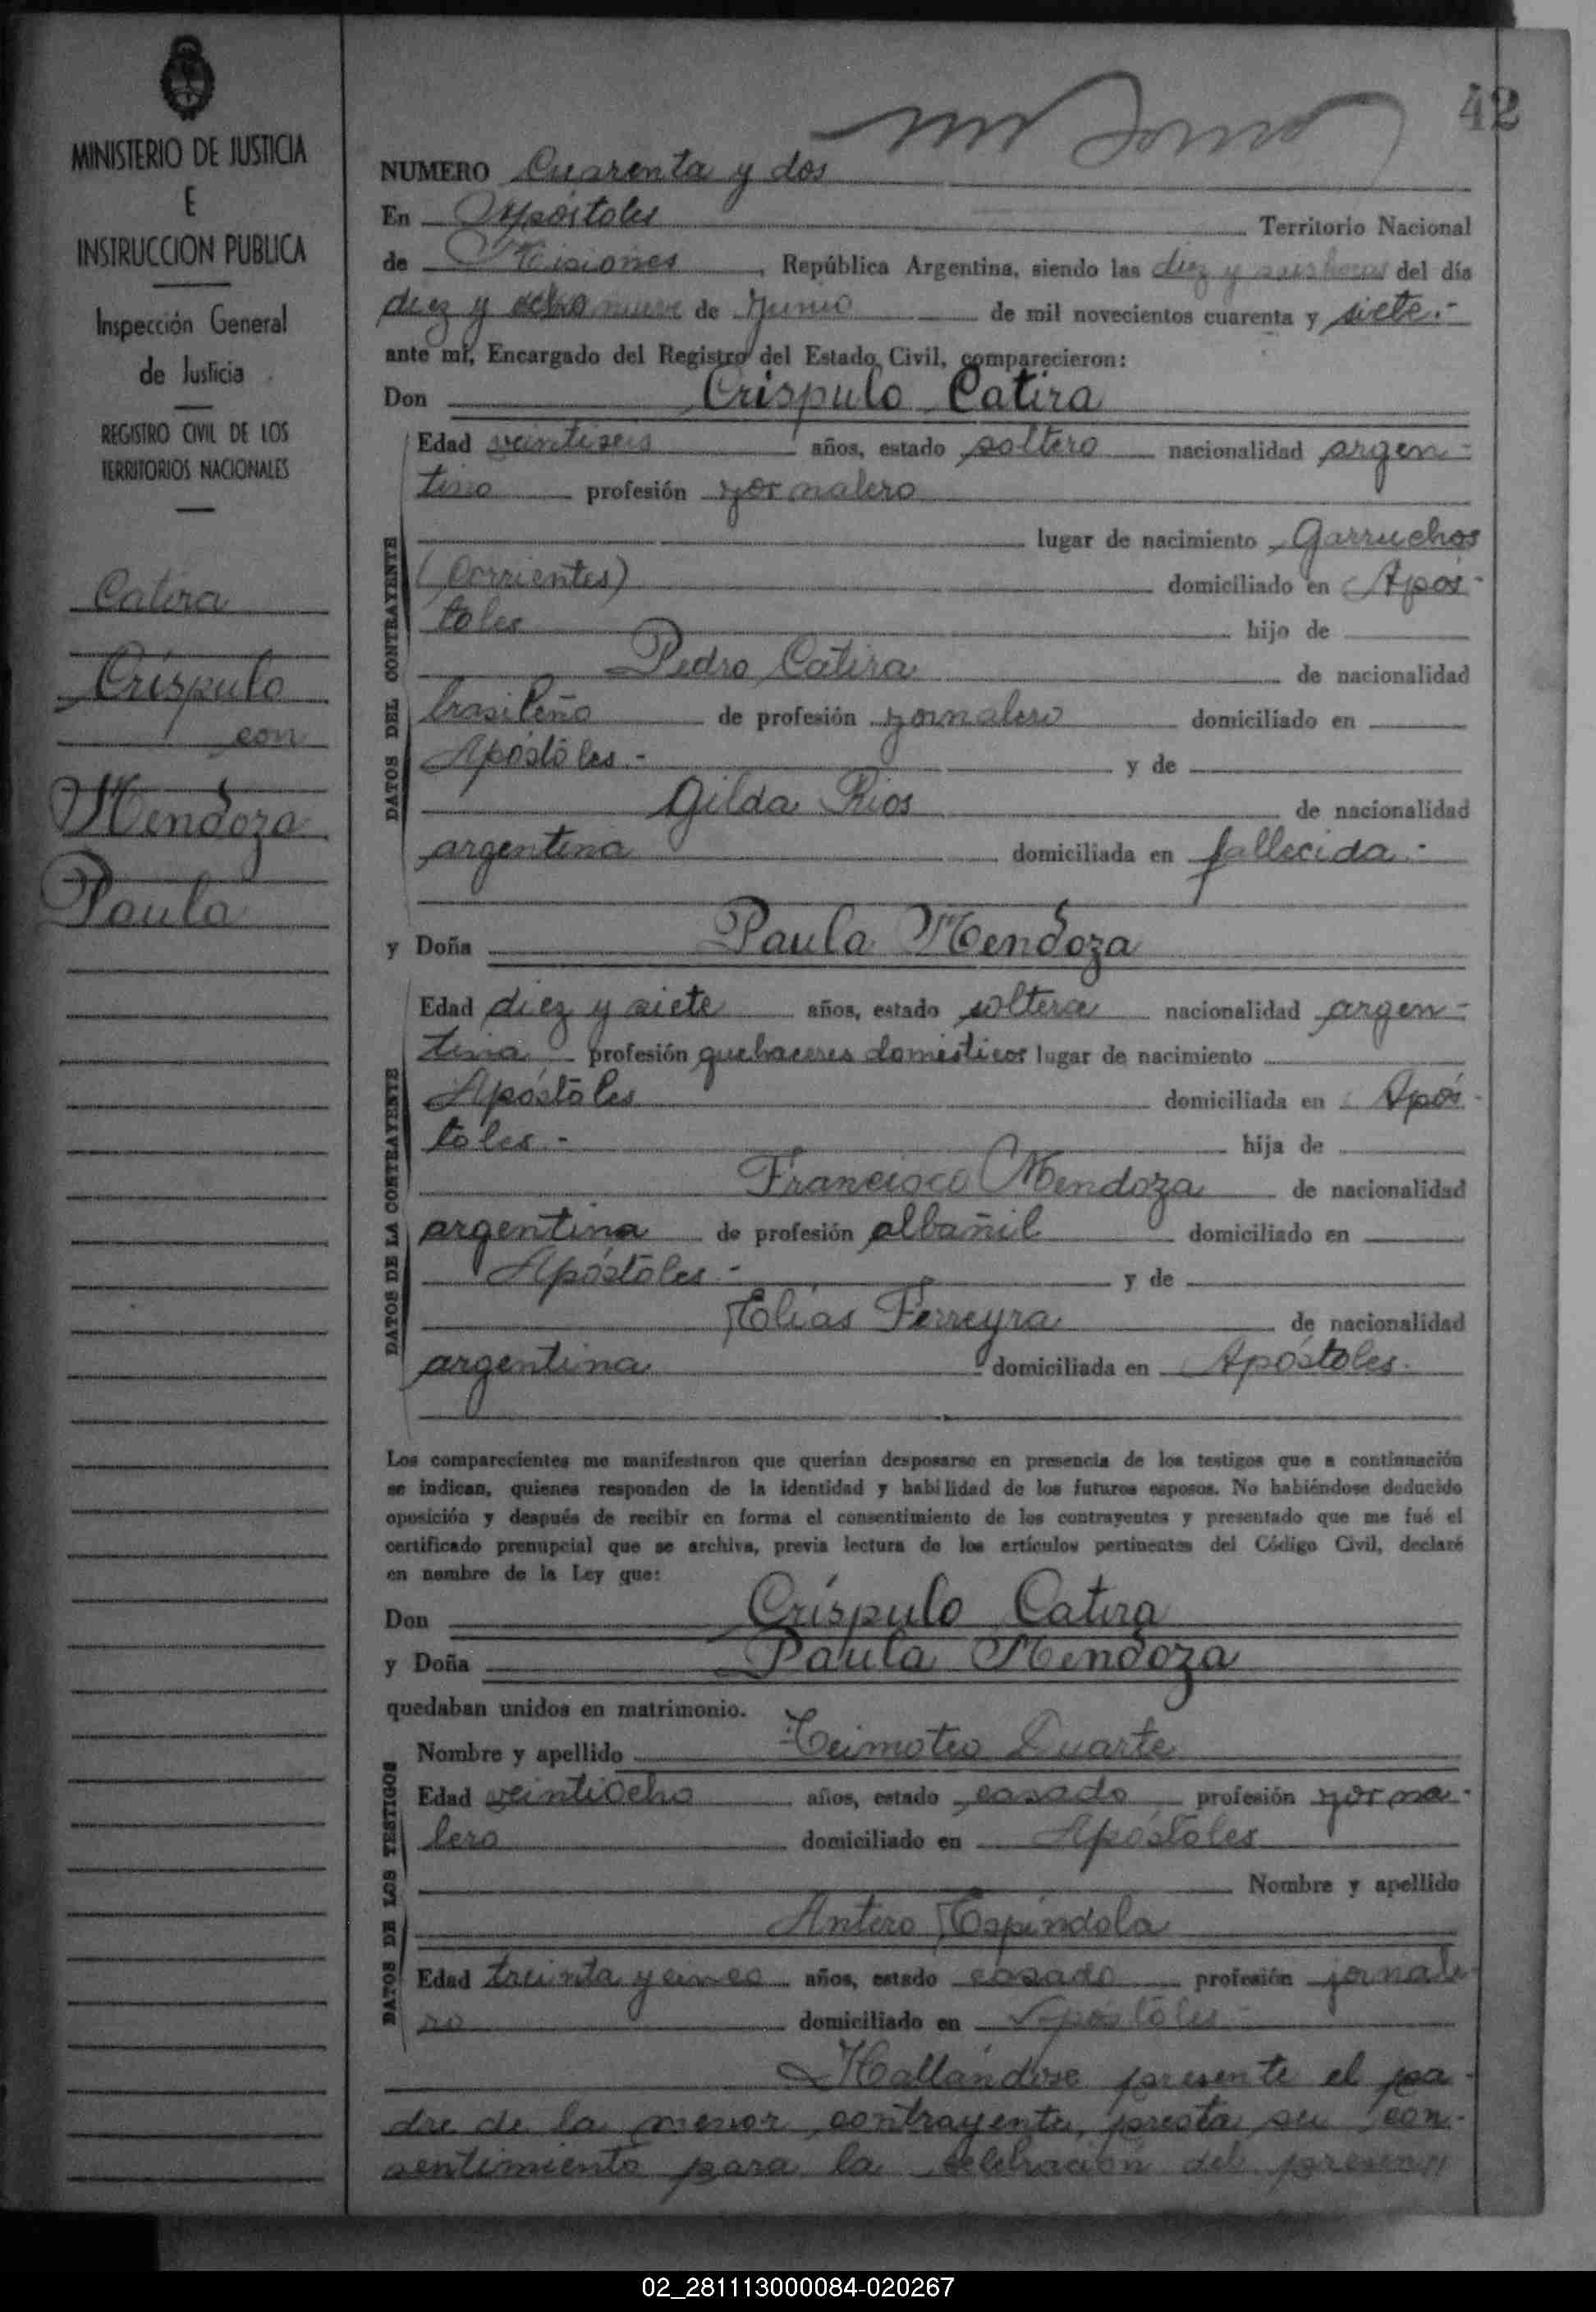 42
MINISTERIO DE JUSTICIA
E
INSTRUCCION PUBLICA
Inspección General
de Justicia
REGISTRO CIVIL DE LOS
TERRITORIOS NACIONALES
Catira
Críspulo
con
Mendoza
Paula
NUMERO Cuarenta y dos
En Apóstoles Territorio Nacional
de Misiones, República Argentina, siendo las diez y seis horas del día
diez y ocho nueve de Junio de mil novecientos cuarenta y siete.-
ante mí, Encargado del Registro del Estado Civil, comparecieron:
Don Críspulo Catira
DATOS DEL CONTRAYENTE
Edad veintiseis años, estado soltero nacionalidad argen-
tino profesión jornalero
lugar de nacimiento Garruchos
(Corrientes) domiciliado en Após-
toles hijo de
Pedro Catira de nacionalidad
brasileño de profesión jornalero domiciliado en
Apóstoles.- y de
Gilda Rios de nacionalidad
argentina domiciliada en fallecida.-
y Doña Paula Mendoza
DATOS DE LA CONTRAYENTE
Edad diez y siete años, estado soltera nacionalidad argen-
tina profesión quehaceres domésticos lugar de nacimiento
Apóstoles domiciliada en Após-
toles.- hija de
Francisco Mendoza de nacionalidad
argentina de profesión albañil domiciliado en
Apóstoles.- y de
Elías Ferreyra de nacionalidad
argentina domiciliada en Apóstoles.
Los comparecientes me manifestaron que querían desposarse en presencia de los testigos que a continuación
se indican, quienes responden de la identidad y habilidad de los futuros esposos. No habiéndose deducido
oposición y después de recibir en forma el consentimiento de los contrayentes y presentado que me fué el
certificado prenupcial que se archiva, previa lectura de los artículos pertinentes del Código Civil, declaré
en nombre de la Ley que:
Don Críspulo Catira
y Doña Paula Mendoza
quedaban unidos en matrimonio.
DATOS DE LOS TESTIGOS
Nombre y apellido Teimoteo Duarte
Edad veintiocho años, estado casado profesión jorna-
lero domiciliado en Apóstoles
Nombre y apellido
Antero Espíndola
Edad treinta y cinco años, estado casado profesión jornale-
ro domiciliado en Apóstoles
Hallándose presente el pa-
dre de la menor contrayente, presta su con-
sentimiento para la celebración del presen
02_281113000084-020267